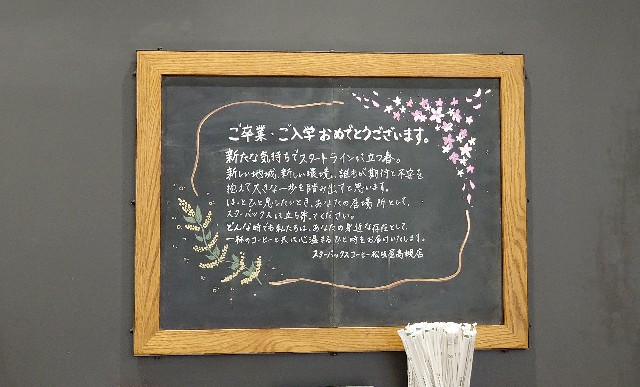 ご卒業・ご入学おめでとうございます。
新たな気持ちでスタートラインに立つ春。
新しい地域、新しい環境。誰もが期待と不安を
抱えて大きな一歩を踏み出すと思います。
ほっとひと息したいとき、あなたの居場所として、
スターバックスに立ち寄ってください。
どんな時でも私たちは、あなたの身近な存在として
一杯のコーヒーと共に心温まるひと時をお届けいたします。
スターバックスコーヒー松坂屋高槻店